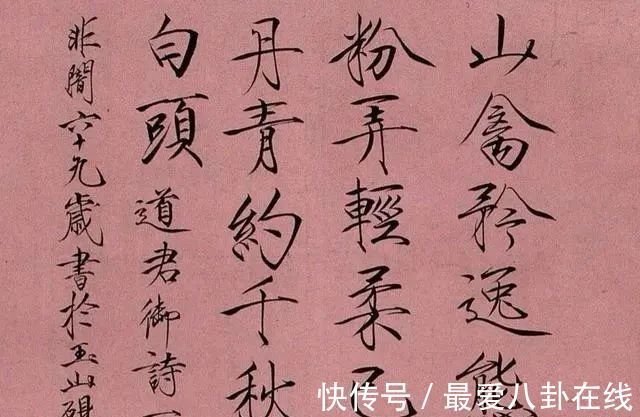 山禽矜逸態
粉弄輕柔已
丹青約千秋
白頭 道君御詩
非闇六十九歲書於玉山硯
快传号 / 最爱八卦在线